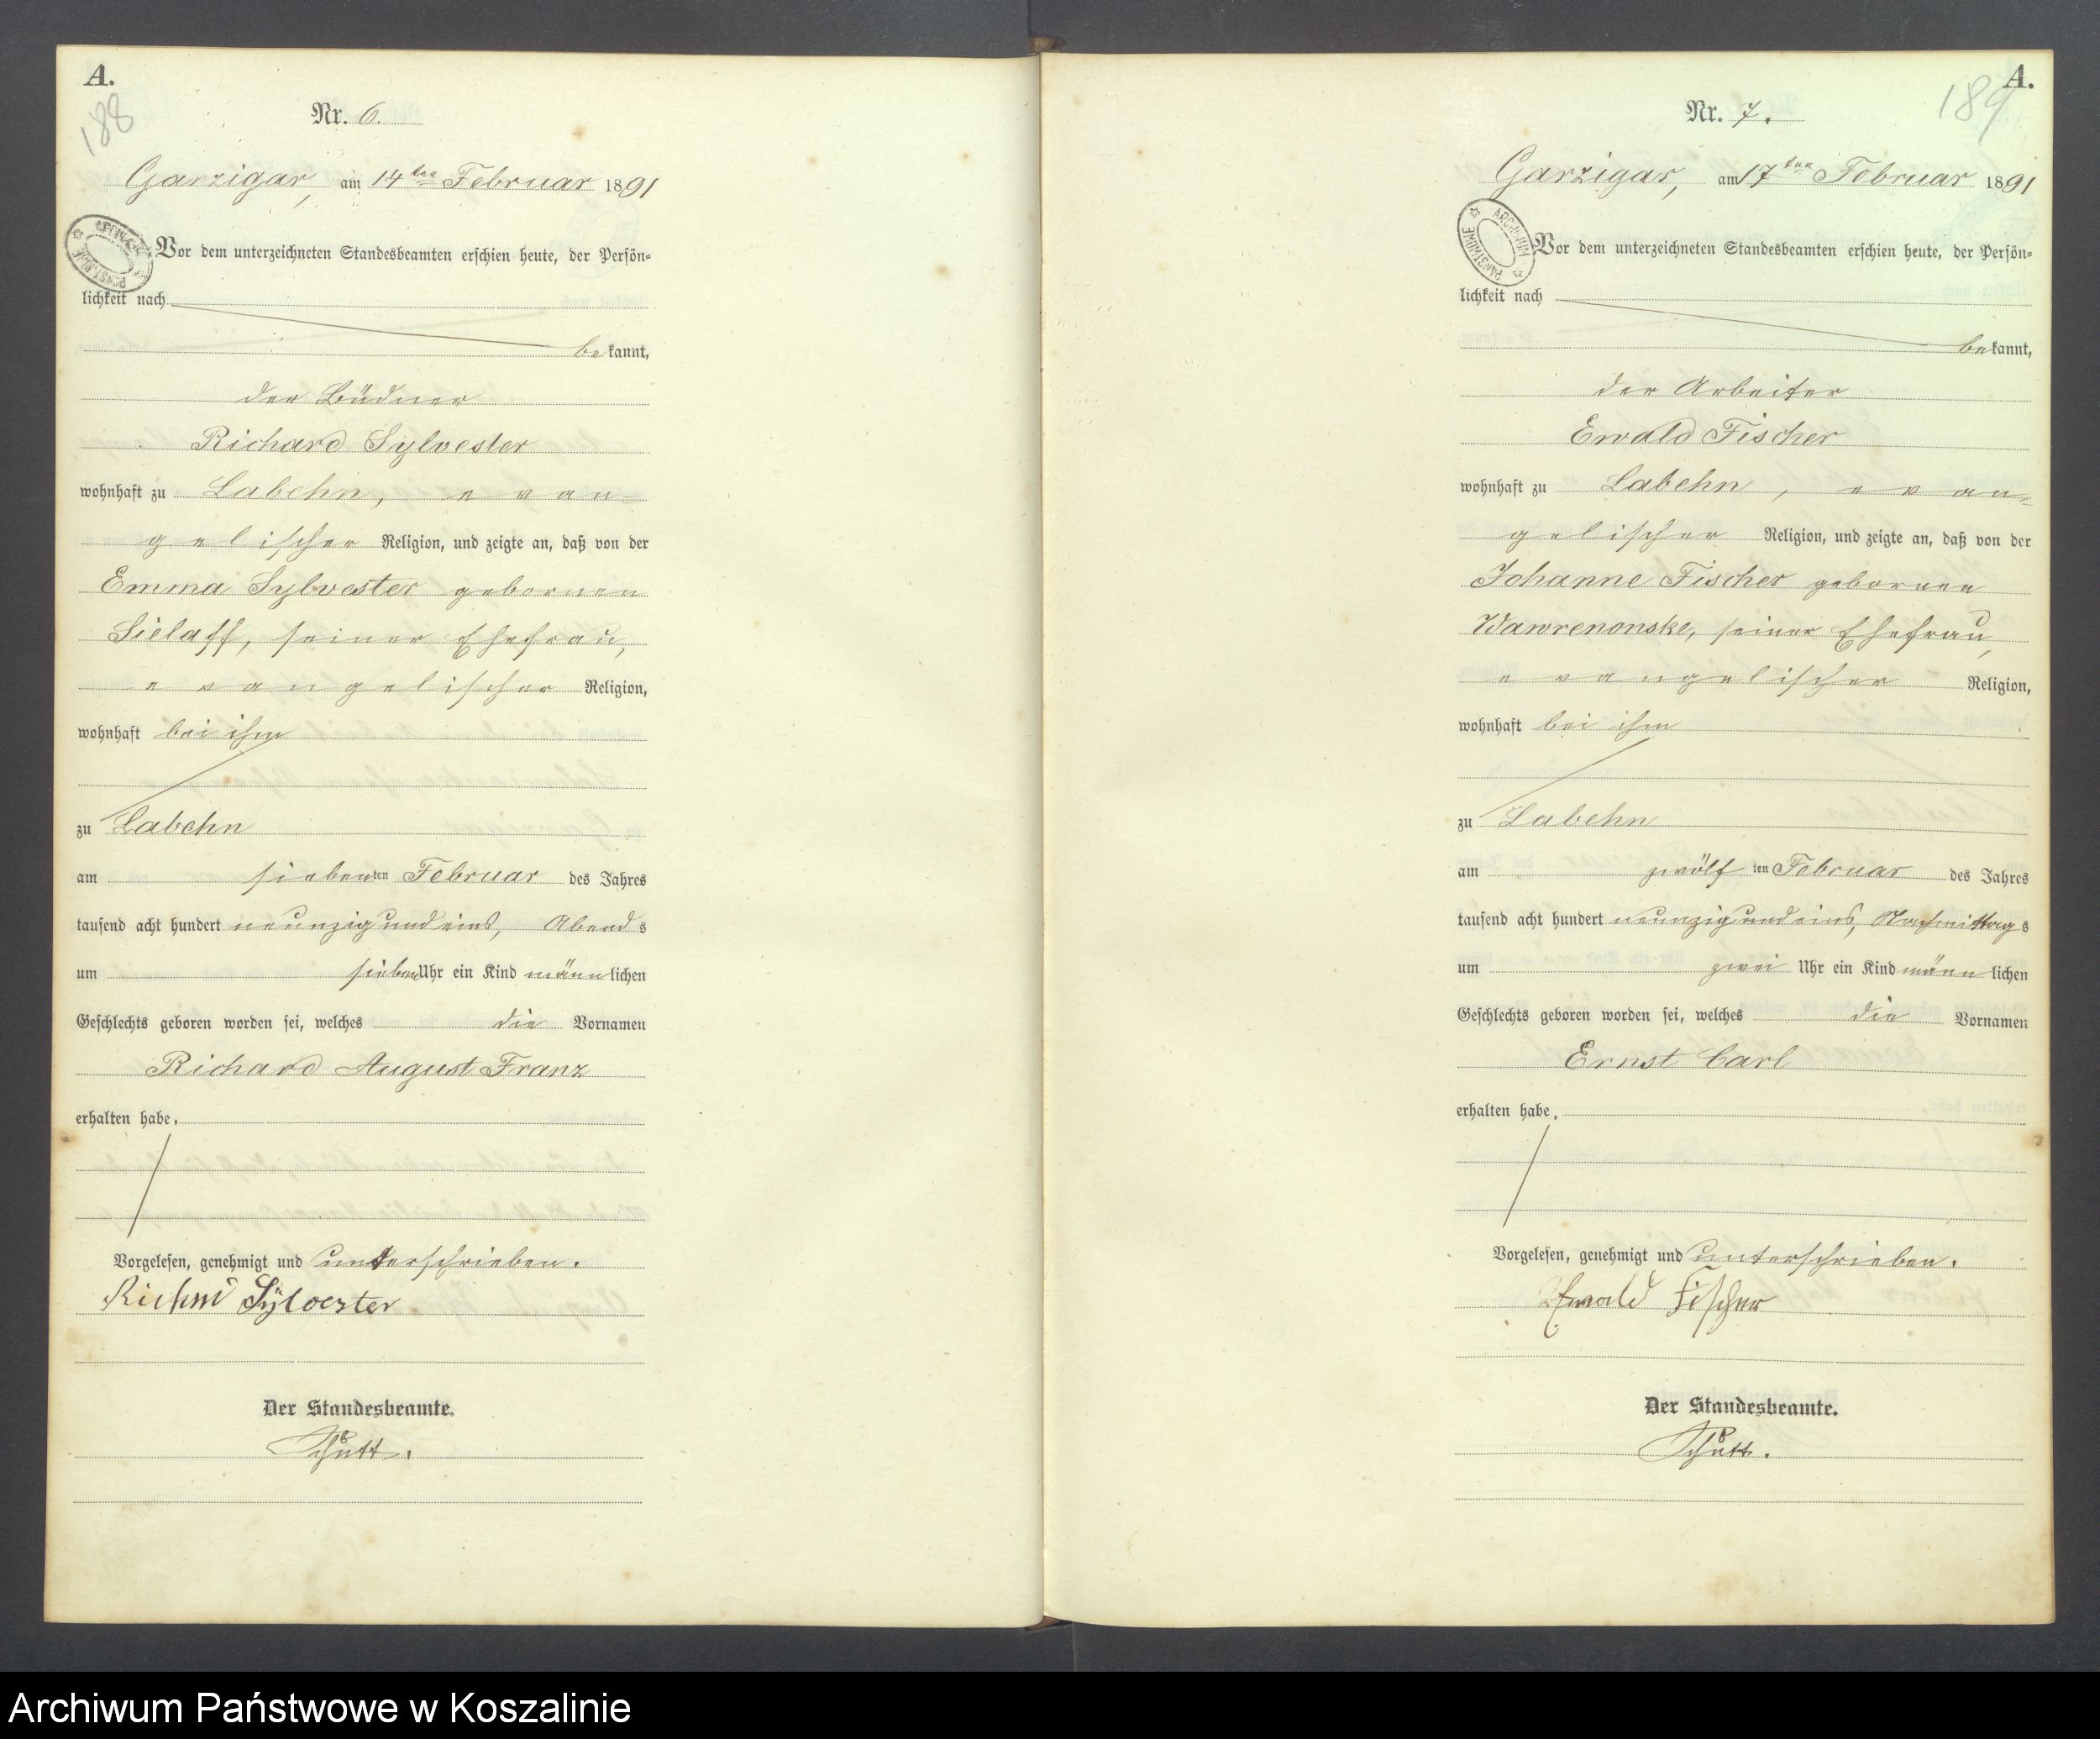 A.
188
Nr. 6.
Garzigar, am 14ten Februar 1891
Vor dem unterzeichneten Standesbeamten erschien heute, der Persön=
lichkeit nach
bekannt,
der Büdner
Richard Sylvester
wohnhaft zu Labehn, evan=
gelischer Religion, und zeigte an, daß von der
Emma Sylvester gebornen
Sielaff, seiner Ehefrau,
evangelischer Religion,
wohnhaft bei ihm
zu Labehn
am siebenten Februar des Jahres
tausend acht hundert neunzig und eins, Abends
um sieben Uhr ein Kind männlichen
Geschlechts geboren worden sei, welches die Vornamen
Richard August Franz
erhalten habe.
Vorgelesen, genehmigt und unterschrieben.
Richard Sylvester
Der Standesbeamte.
Schütt.
A.
189
Nr. 7.
Garzigar, am 17ten Februar 1891
ARCHIWUM PAŃSTWOWE
Vor dem unterzeichneten Standesbeamten erschien heute, der Persön=
lichkeit nach
bekannt,
der Arbeiter
Ewald Fischer
wohnhaft zu Labehn, evan=
gelischer Religion, und zeigte an, daß von der
Johanne Fischer gebornen
Wawrenonske, seiner Ehefrau,
evangelischer Religion,
wohnhaft bei ihm
zu Labehn
am zwölften Februar des Jahres
tausend acht hundert neunzig und eins, Nachmittags
um zwei Uhr ein Kind männlichen
Geschlechts geboren worden sei, welches die Vornamen
Ernst Carl
erhalten habe.
Vorgelesen, genehmigt und unterschrieben.
Ewald Fischer
Der Standesbeamte.
Schütt.
Archiwum Państwowe w Koszalinie